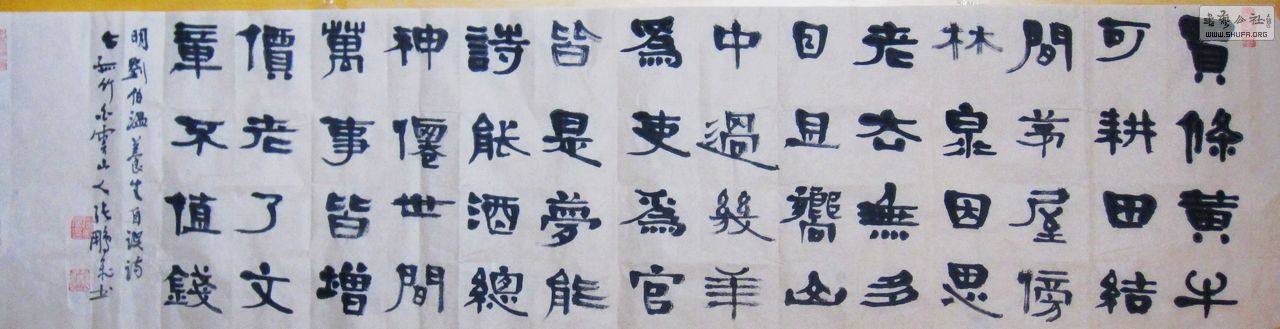 買條黃牛
可耕田結
間茅屋傍
林泉因思
老去無多
日且嚮山
中過幾年
爲吏爲官
皆是夢能
詩能酒總
神僊世間
萬事皆增
價老了文
章不值錢
明劉伯溫養生自詩
竹白雲山人張鵬
書藝公社
WWW.SHUFA.ORG